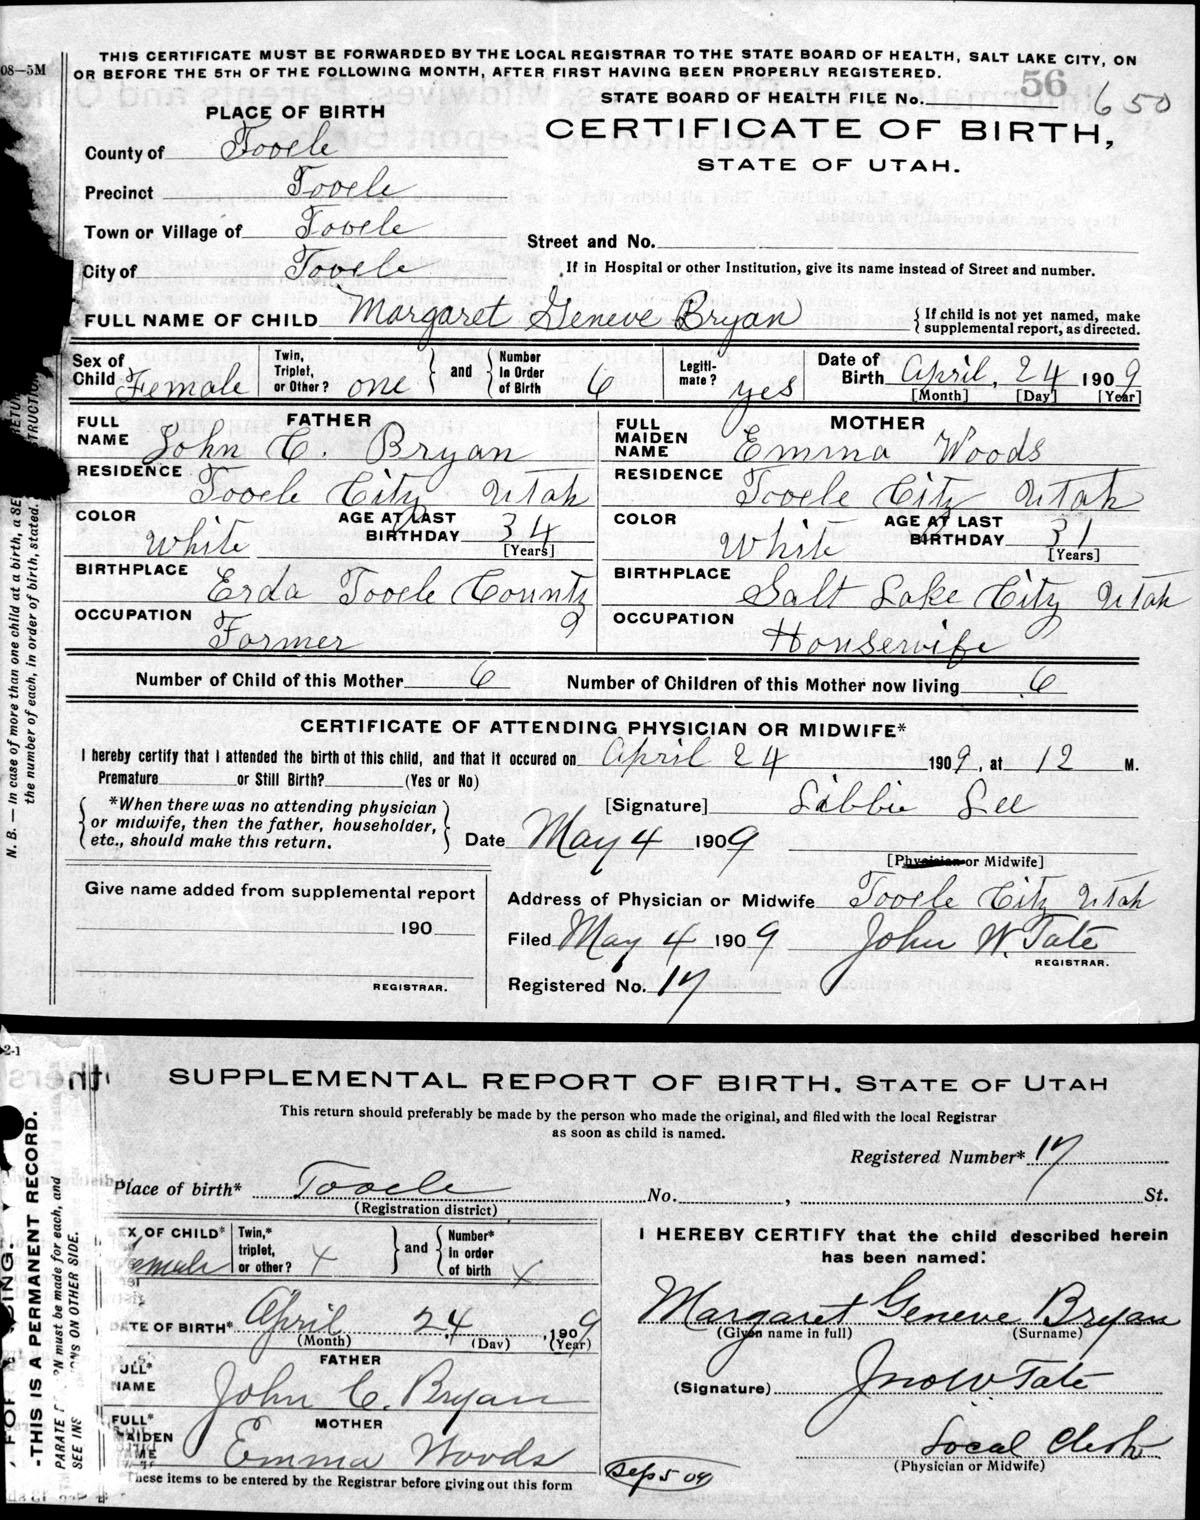 08—5M
THIS CERTIFICATE MUST BE FORWARDED BY THE LOCAL REGISTRAR TO THE STATE BOARD OF HEALTH, SALT LAKE CITY, ON
OR BEFORE THE 5TH OF THE FOLLOWING MONTH, AFTER FIRST HAVING BEEN PROPERLY REGISTERED.
STATE BOARD OF HEALTH FILE No. 56 650
PLACE OF BIRTH
CERTIFICATE OF BIRTH,
STATE OF UTAH.
County of Tooele
Precinct Tooele
Town or Village of Tooele
Street and No.
City of Tooele
If in Hospital or other Institution, give its name instead of Street and number.
FULL NAME OF CHILD Margaret Geneve Bryan
{ If child is not yet named, make
supplemental report, as directed.
Sex of Child Female
Twin, Triplet, or Other? one } and { Number In Order of Birth 6
Legiti-mate? yes
Date of Birth April, 24 1909
[Month] [Day] [Year]
FATHER
FULL NAME John C. Bryan
RESIDENCE Tooele City Utah
COLOR White AGE AT LAST BIRTHDAY 34 [Years]
BIRTHPLACE Erda Tooele County
OCCUPATION Farmer
MOTHER
FULL MAIDEN NAME Emma Woods
RESIDENCE Tooele City Utah
COLOR White AGE AT LAST BIRTHDAY 31 [Years]
BIRTHPLACE Salt Lake City Utah
OCCUPATION Housewife
Number of Child of this Mother 6 Number of Children of this Mother now living 6
CERTIFICATE OF ATTENDING PHYSICIAN OR MIDWIFE*
I hereby certify that I attended the birth of this child, and that it occured on April 24 1909, at 12 M.
Premature or Still Birth? (Yes or No)
{ *When there was no attending physician
or midwife, then the father, householder,
etc., should make this return. }
[Signature] Libbie Lee
Date May 4 1909
[Physician or Midwife]
Give name added from supplemental report
190
REGISTRAR.
Address of Physician or Midwife Tooele City Utah
Filed May 4 1909 John W. Tate
REGISTRAR.
Registered No. 17
N. B. — In case of more than one child at a birth, a SE RETUR
the number of each, in order of birth, stated. STRUCTION
2-1
SUPPLEMENTAL REPORT OF BIRTH, STATE OF UTAH
This return should preferably be made by the person who made the original, and filed with the local Registrar
as soon as child is named.
Registered Number* 17
Place of birth* Tooele No. , St.
(Registration district)
EX OF CHILD* Female
Twin,* triplet, or other? x } and { Number* in order of birth x
DATE OF BIRTH* April 24, 1909
(Month) (Day) (Year)
FATHER
FULL* NAME John C. Bryan
MOTHER
FULL* MAIDEN NAME Emma Woods
These items to be entered by the Registrar before giving out this form
I HEREBY CERTIFY that the child described herein
has been named:
Margaret Geneve Bryan
(Given name in full) (Surname)
(Signature) Jno W. Tate
Local Clerk
(Physician or Midwife)
Sep 5 09
-THIS IS A PERMANENT RECORD.
PARATE N must be made for each, and
SEE INS ONS ON OTHER SIDE.